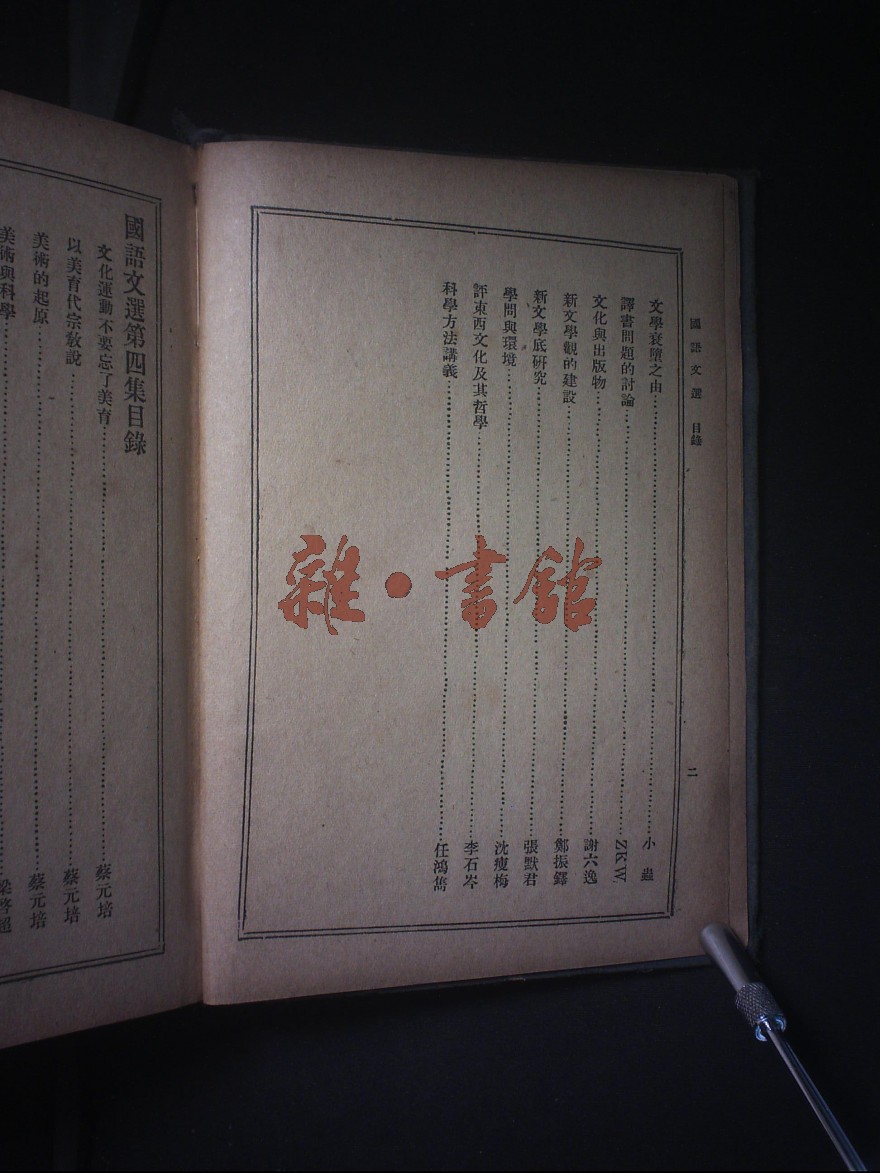 國語文選 目錄
二
文學衰墮之由 小蟲
譯書問題的討論 ZKW.
文化與出版物 謝六逸
新文學觀的建設 鄭振鐸
新文學底研究 張默君
學問與環境 沈瘦梅
評東西文化及其哲學 李石岑
科學方法講義 任鴻雋
國語文選第四集目錄
文化運動不要忘了美育 蔡元培
以美育代宗敎說 蔡元培
美術的起原 蔡元培
美術與科學 梁啓超
雜・書館